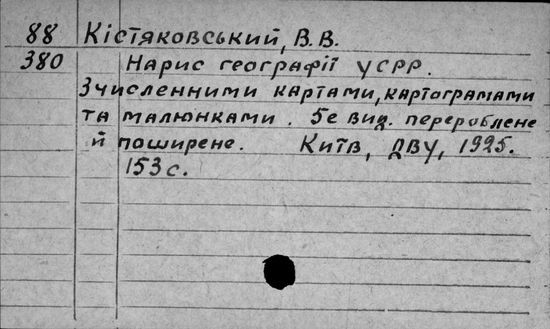 88 Кістяковський, В.В.
380 Нарис географії УСРР.
Зчисленними картами, картограмами
та малюнками. 5е вид. перероблене
й поширене. Київ, ДВУ, 1925.
153 с.